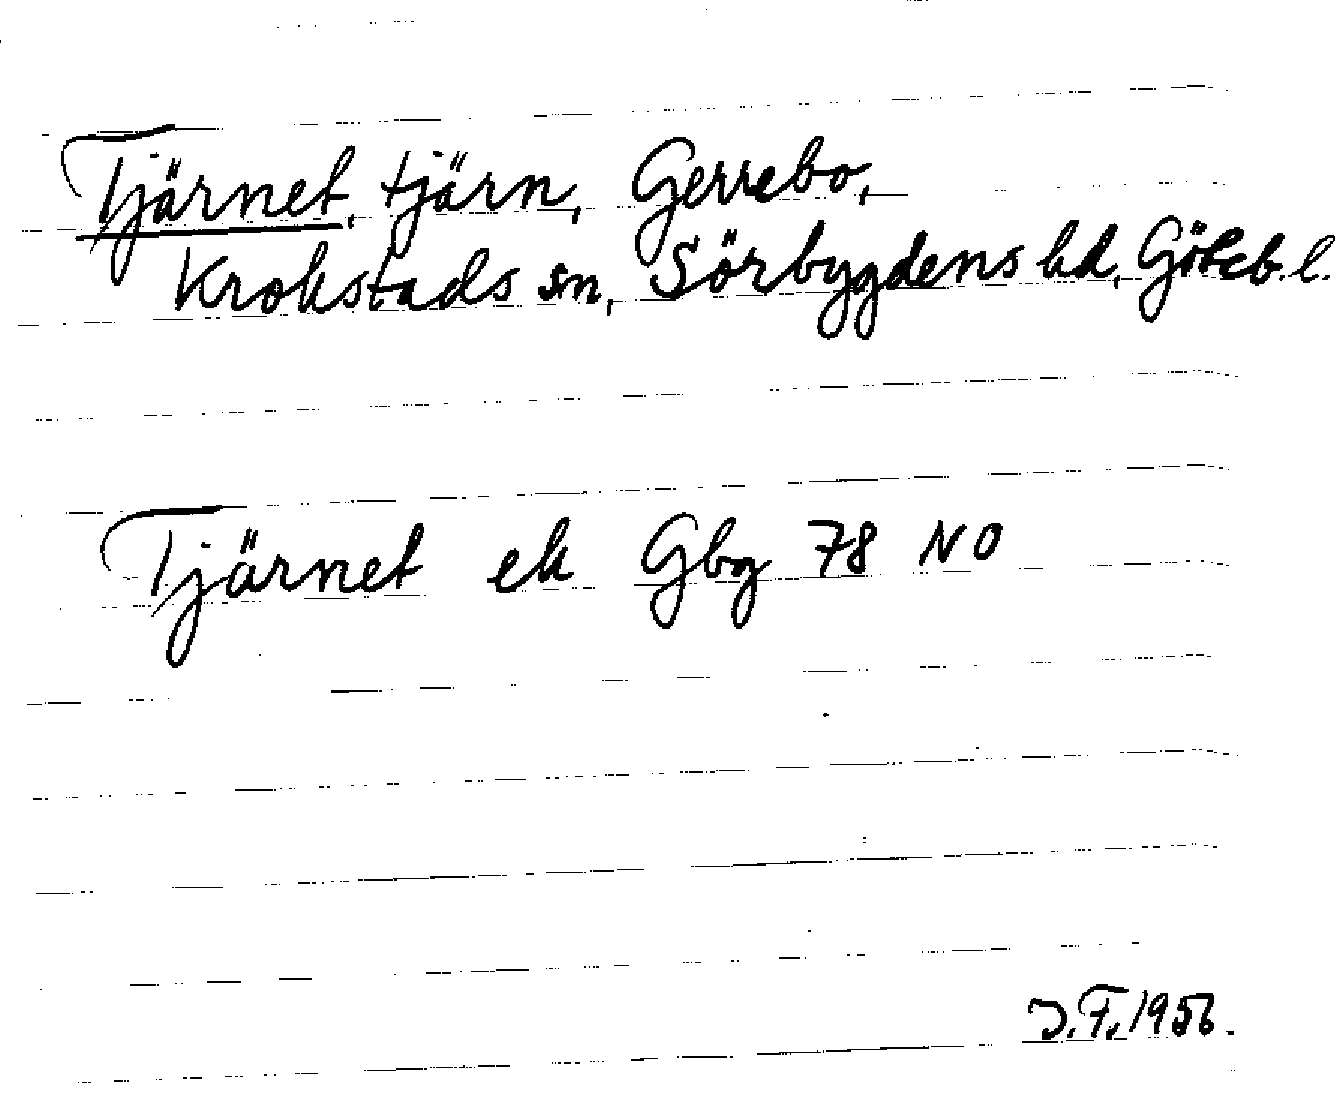 Tjärnet, tjärn, Gerrebo,
Krokstads sn, Sörbygdens hd, Göteb. l.
Tjärnet ek Gbg 78 NO
J.F. 1956.